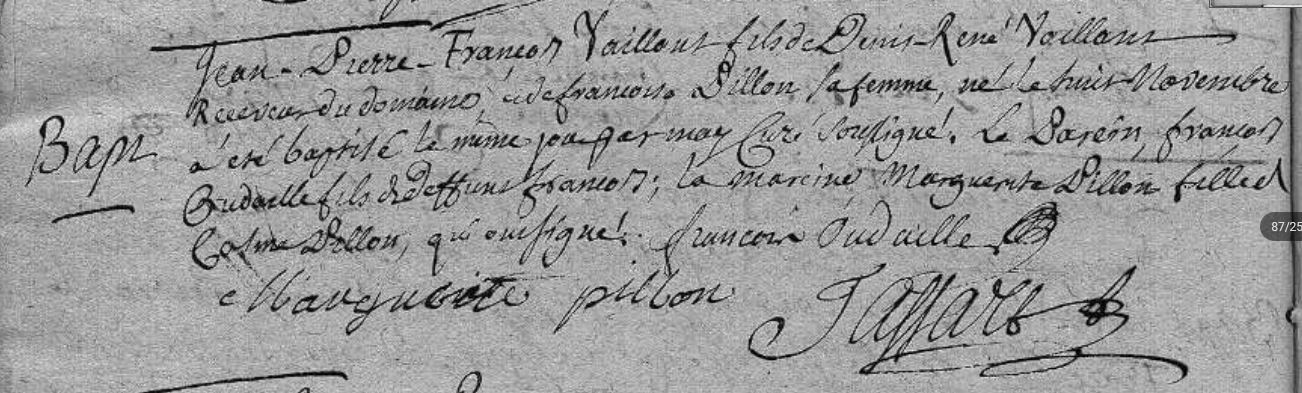 Jean-Pierre-François Vaillant fils de Denis-René Vaillant
Receveur du domaine, & de françoise Pillon sa femme, né le huit Novembre
Bapt
a été baptisé le même jour par moy Curé soussigné. Le Parein, françois
Oudaille fils de deffunt françois; la mareine Marguerite Pillon fille de
Cosme Pillon, qui ont signé.
françois Oudaille
Marguerite pillon
Tassart
87/25